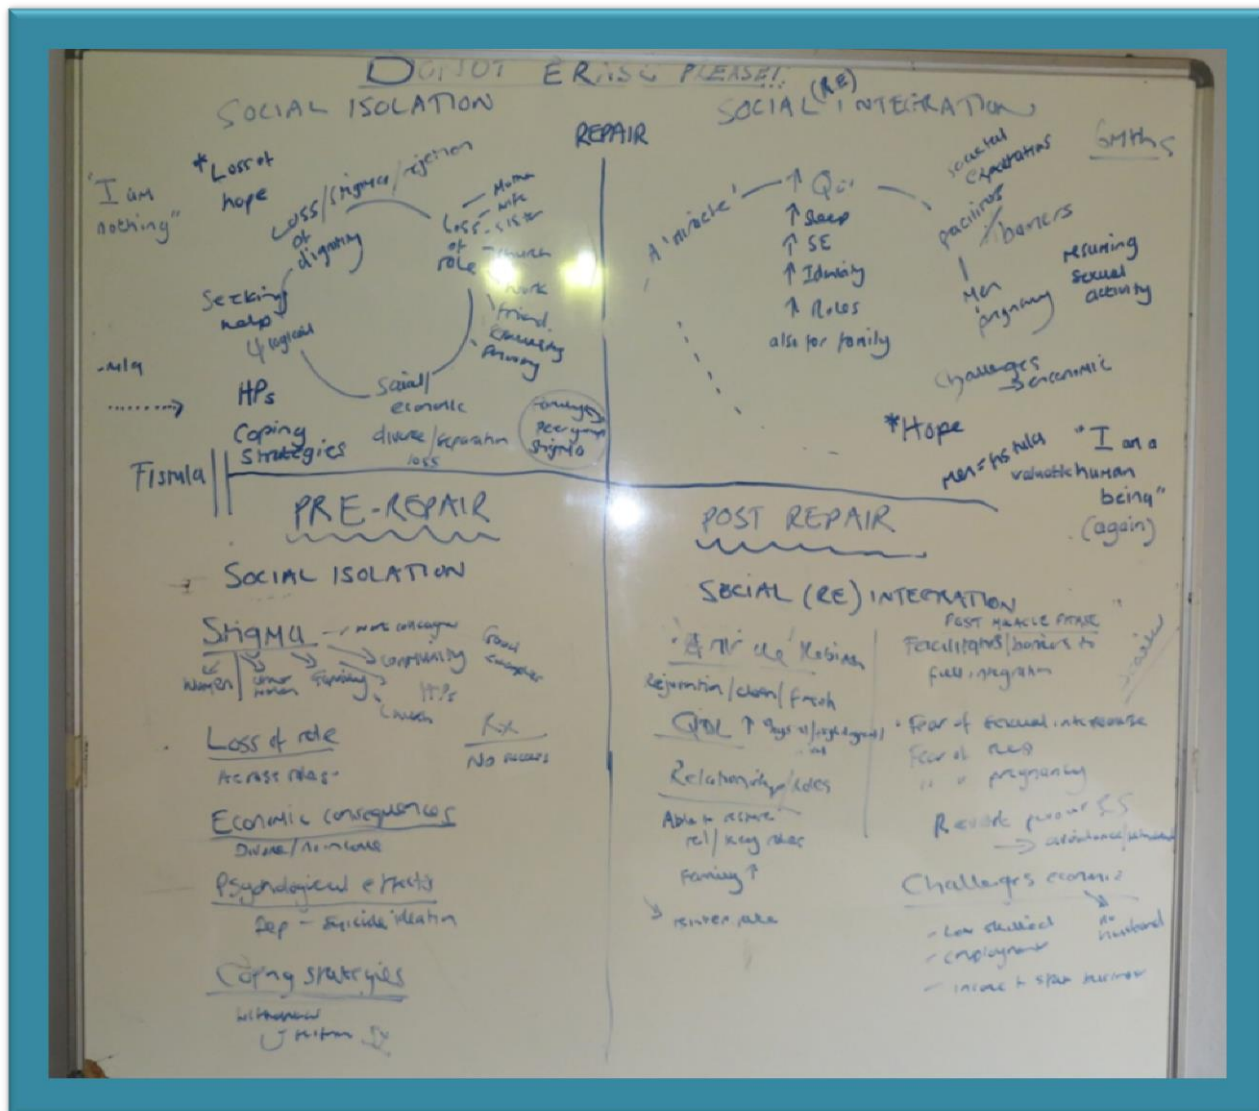 DO NOT ERASE PLEASE!!
SOCIAL ISOLATION
"I am
nothing"
*Loss of
hope
Loss/stigma/rejection
of
dignity
Loss
of
role
- Mother
- wife
- sister
- church
work
friend
Seeking
help
HPs
Coping
Strategies
Social/
economic
divorce/separation
loss
Family
peer group
stigma
Fistula
REPAIR
SOCIAL (RE) INTEGRATION
6mths
A 'miracle'
↑ QoL
↑ Sleep
↑ SE
↑ Identity
↑ Roles
also for family
societal
expectations
facilitators
/barriers
Men
pregnancy
resuming
sexual
activity
Challenges
→ economic
*Hope
Men = fistula
"I am a
valuable human
being"
(again)
PRE-REPAIR
SOCIAL ISOLATION
Stigma
community
women
other
women
Family
HPs
church
Good
examples
Loss of role
Across roles
Rx
No access
Economic consequences
Divorce/no income
Psychological effects
Dep - Suicide ideation
Coping strategies
withdrawal
POST REPAIR
SOCIAL (RE) INTEGRATION
Rejuvenation/clean/fresh
QOL ↑
Relationship/roles
Able to resume
rel/key roles
Family ↑
POST MIRACLE PHASE
Facilitators/barriers to
full integration
Fear of sexual intercourse
Fear of
" " pregnancy
Challenges economic
no
husband
- Low skilled
- employment
- income to start business